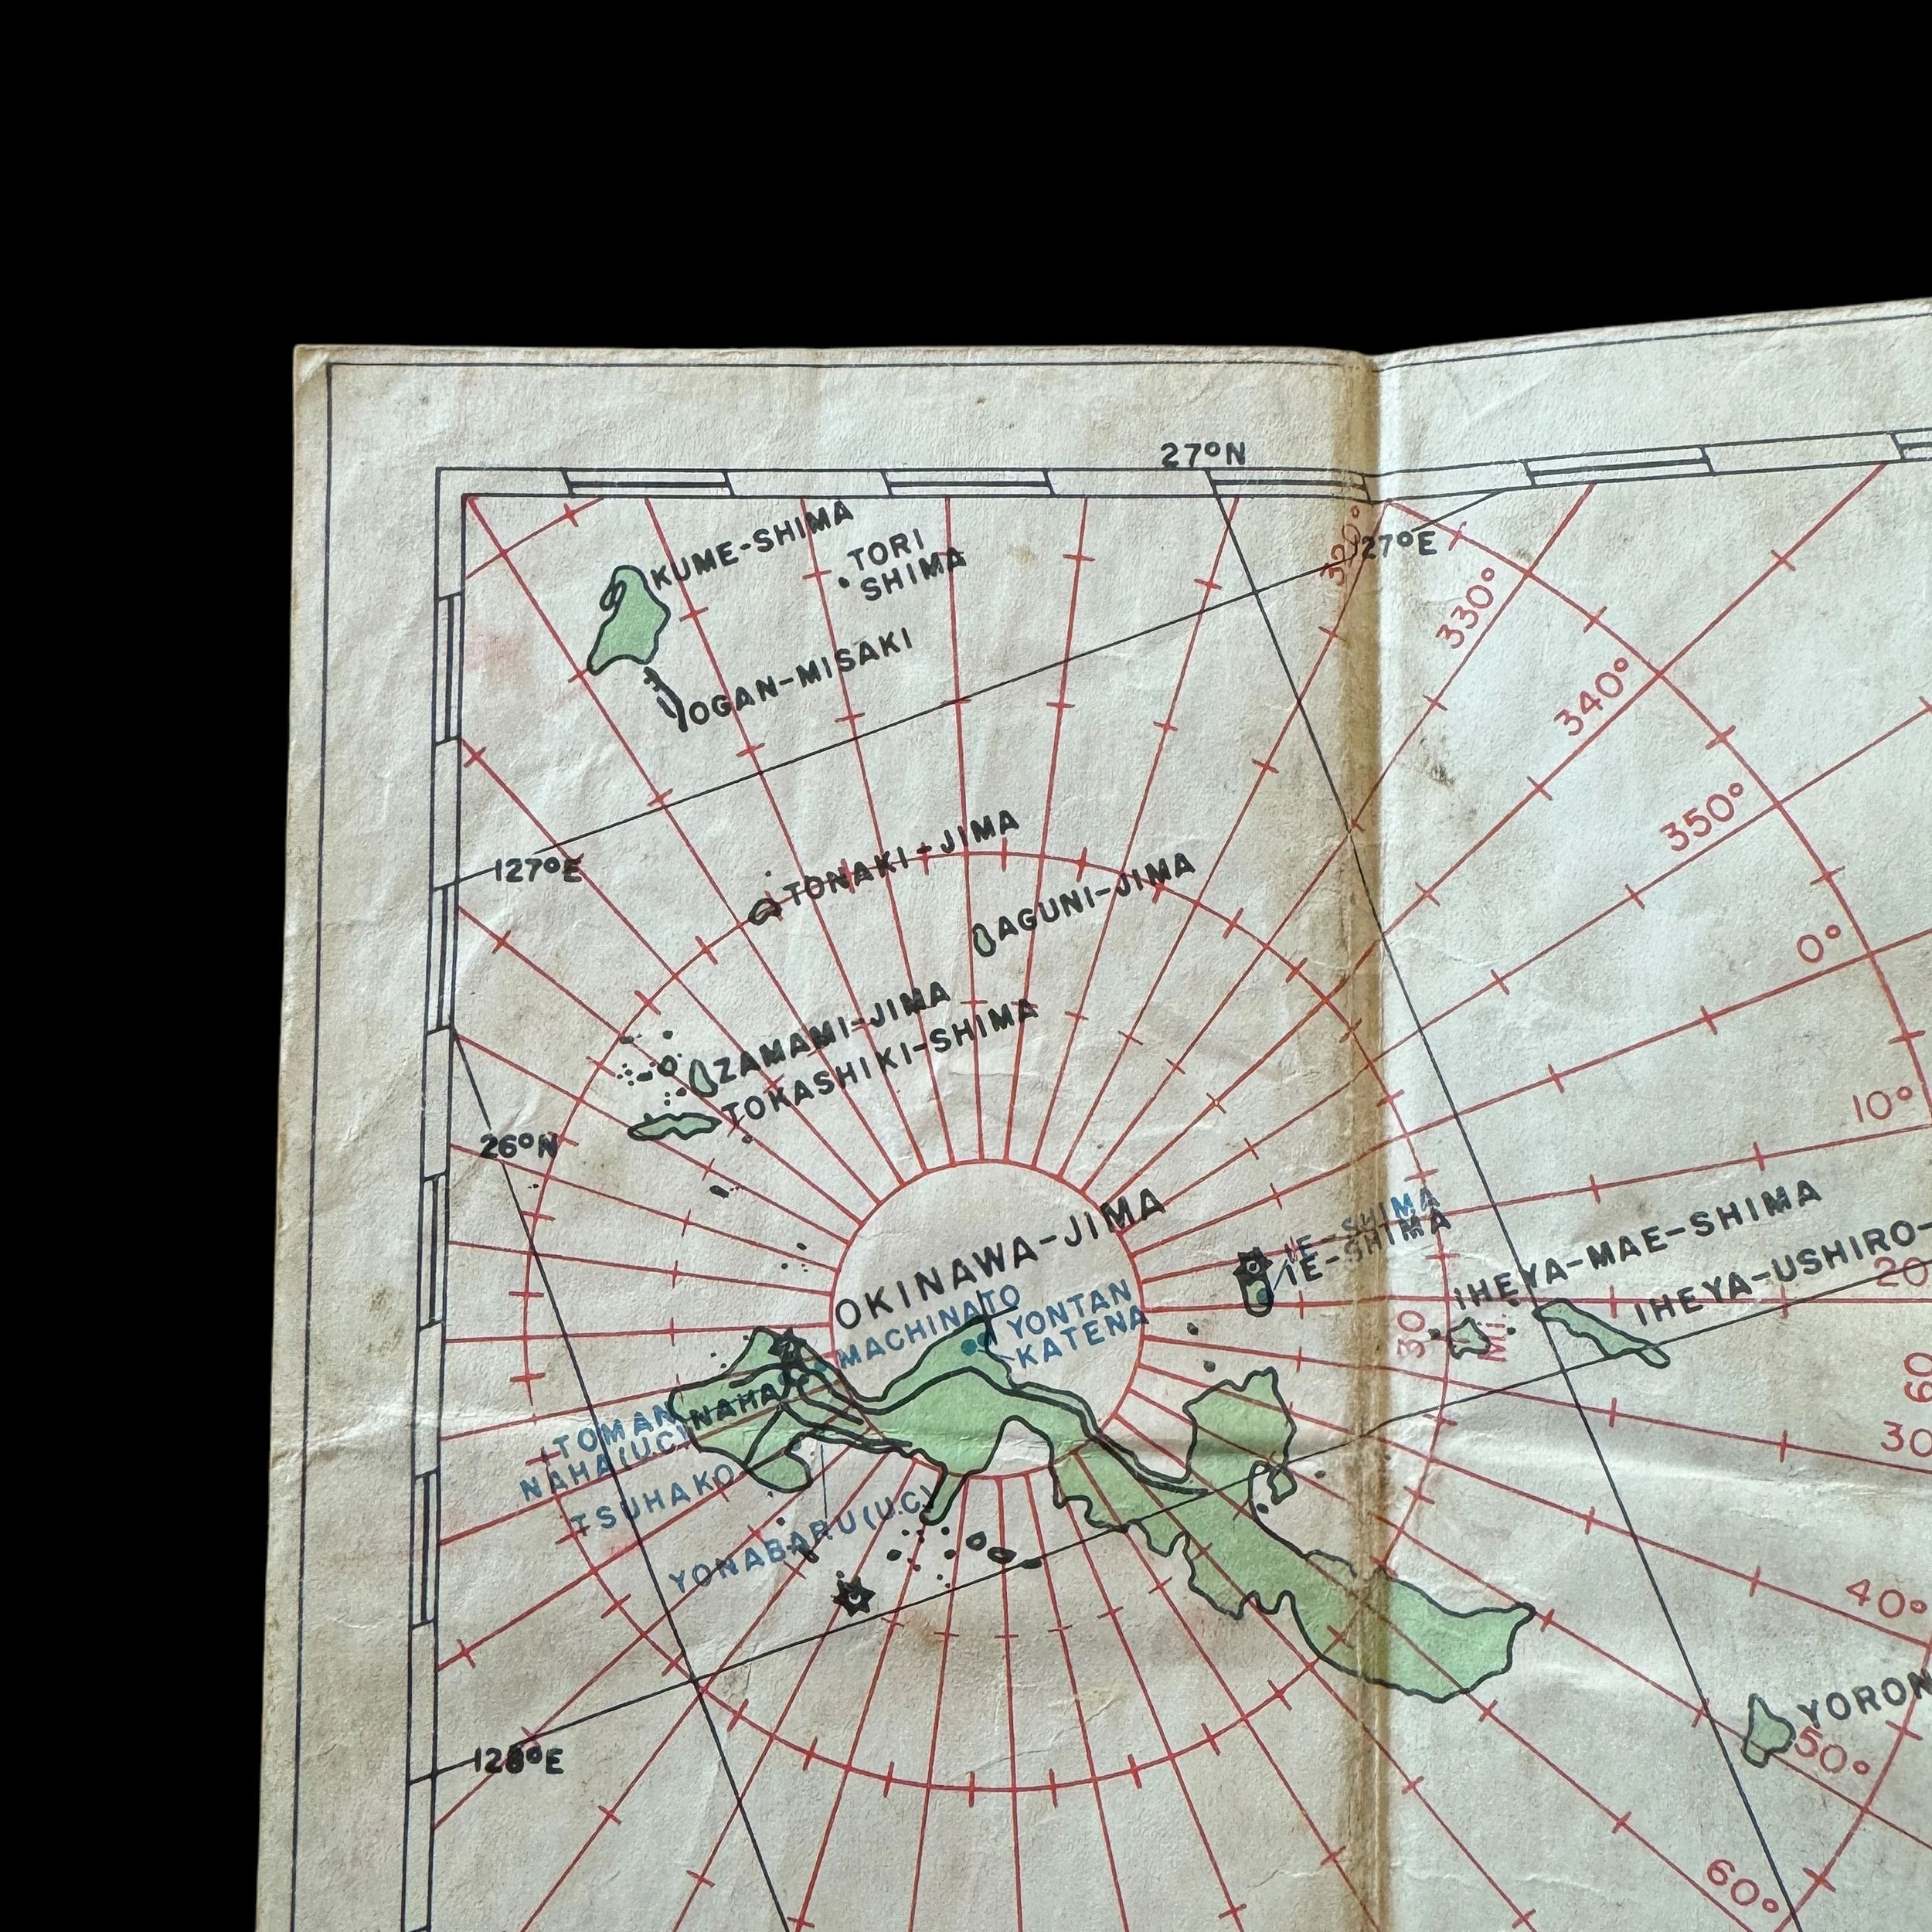 27°N
KUME-SHIMA
TORI
SHIMA
320°
127°E
330°
IOGAN-MISAKI
340°
350°
127°E
TONAKI-JIMA
AGUNI-JIMA
0°
ZAMAMI-JIMA
TOKASHIKI-SHIMA
10°
26°N
OKINAWA-JIMA
IE-SHIMA
IE-SHIMA
IHEYA-MAE-SHIMA
IHEYA-USHIRO-
20
MACHINATO
YONTAN
KATENA
30
MI.
60
NAHA
TOMAN
NAHA(U.C)
TSUHAKO
30
YONABARU(U.C)
40°
YORON
50°
128°E
60°